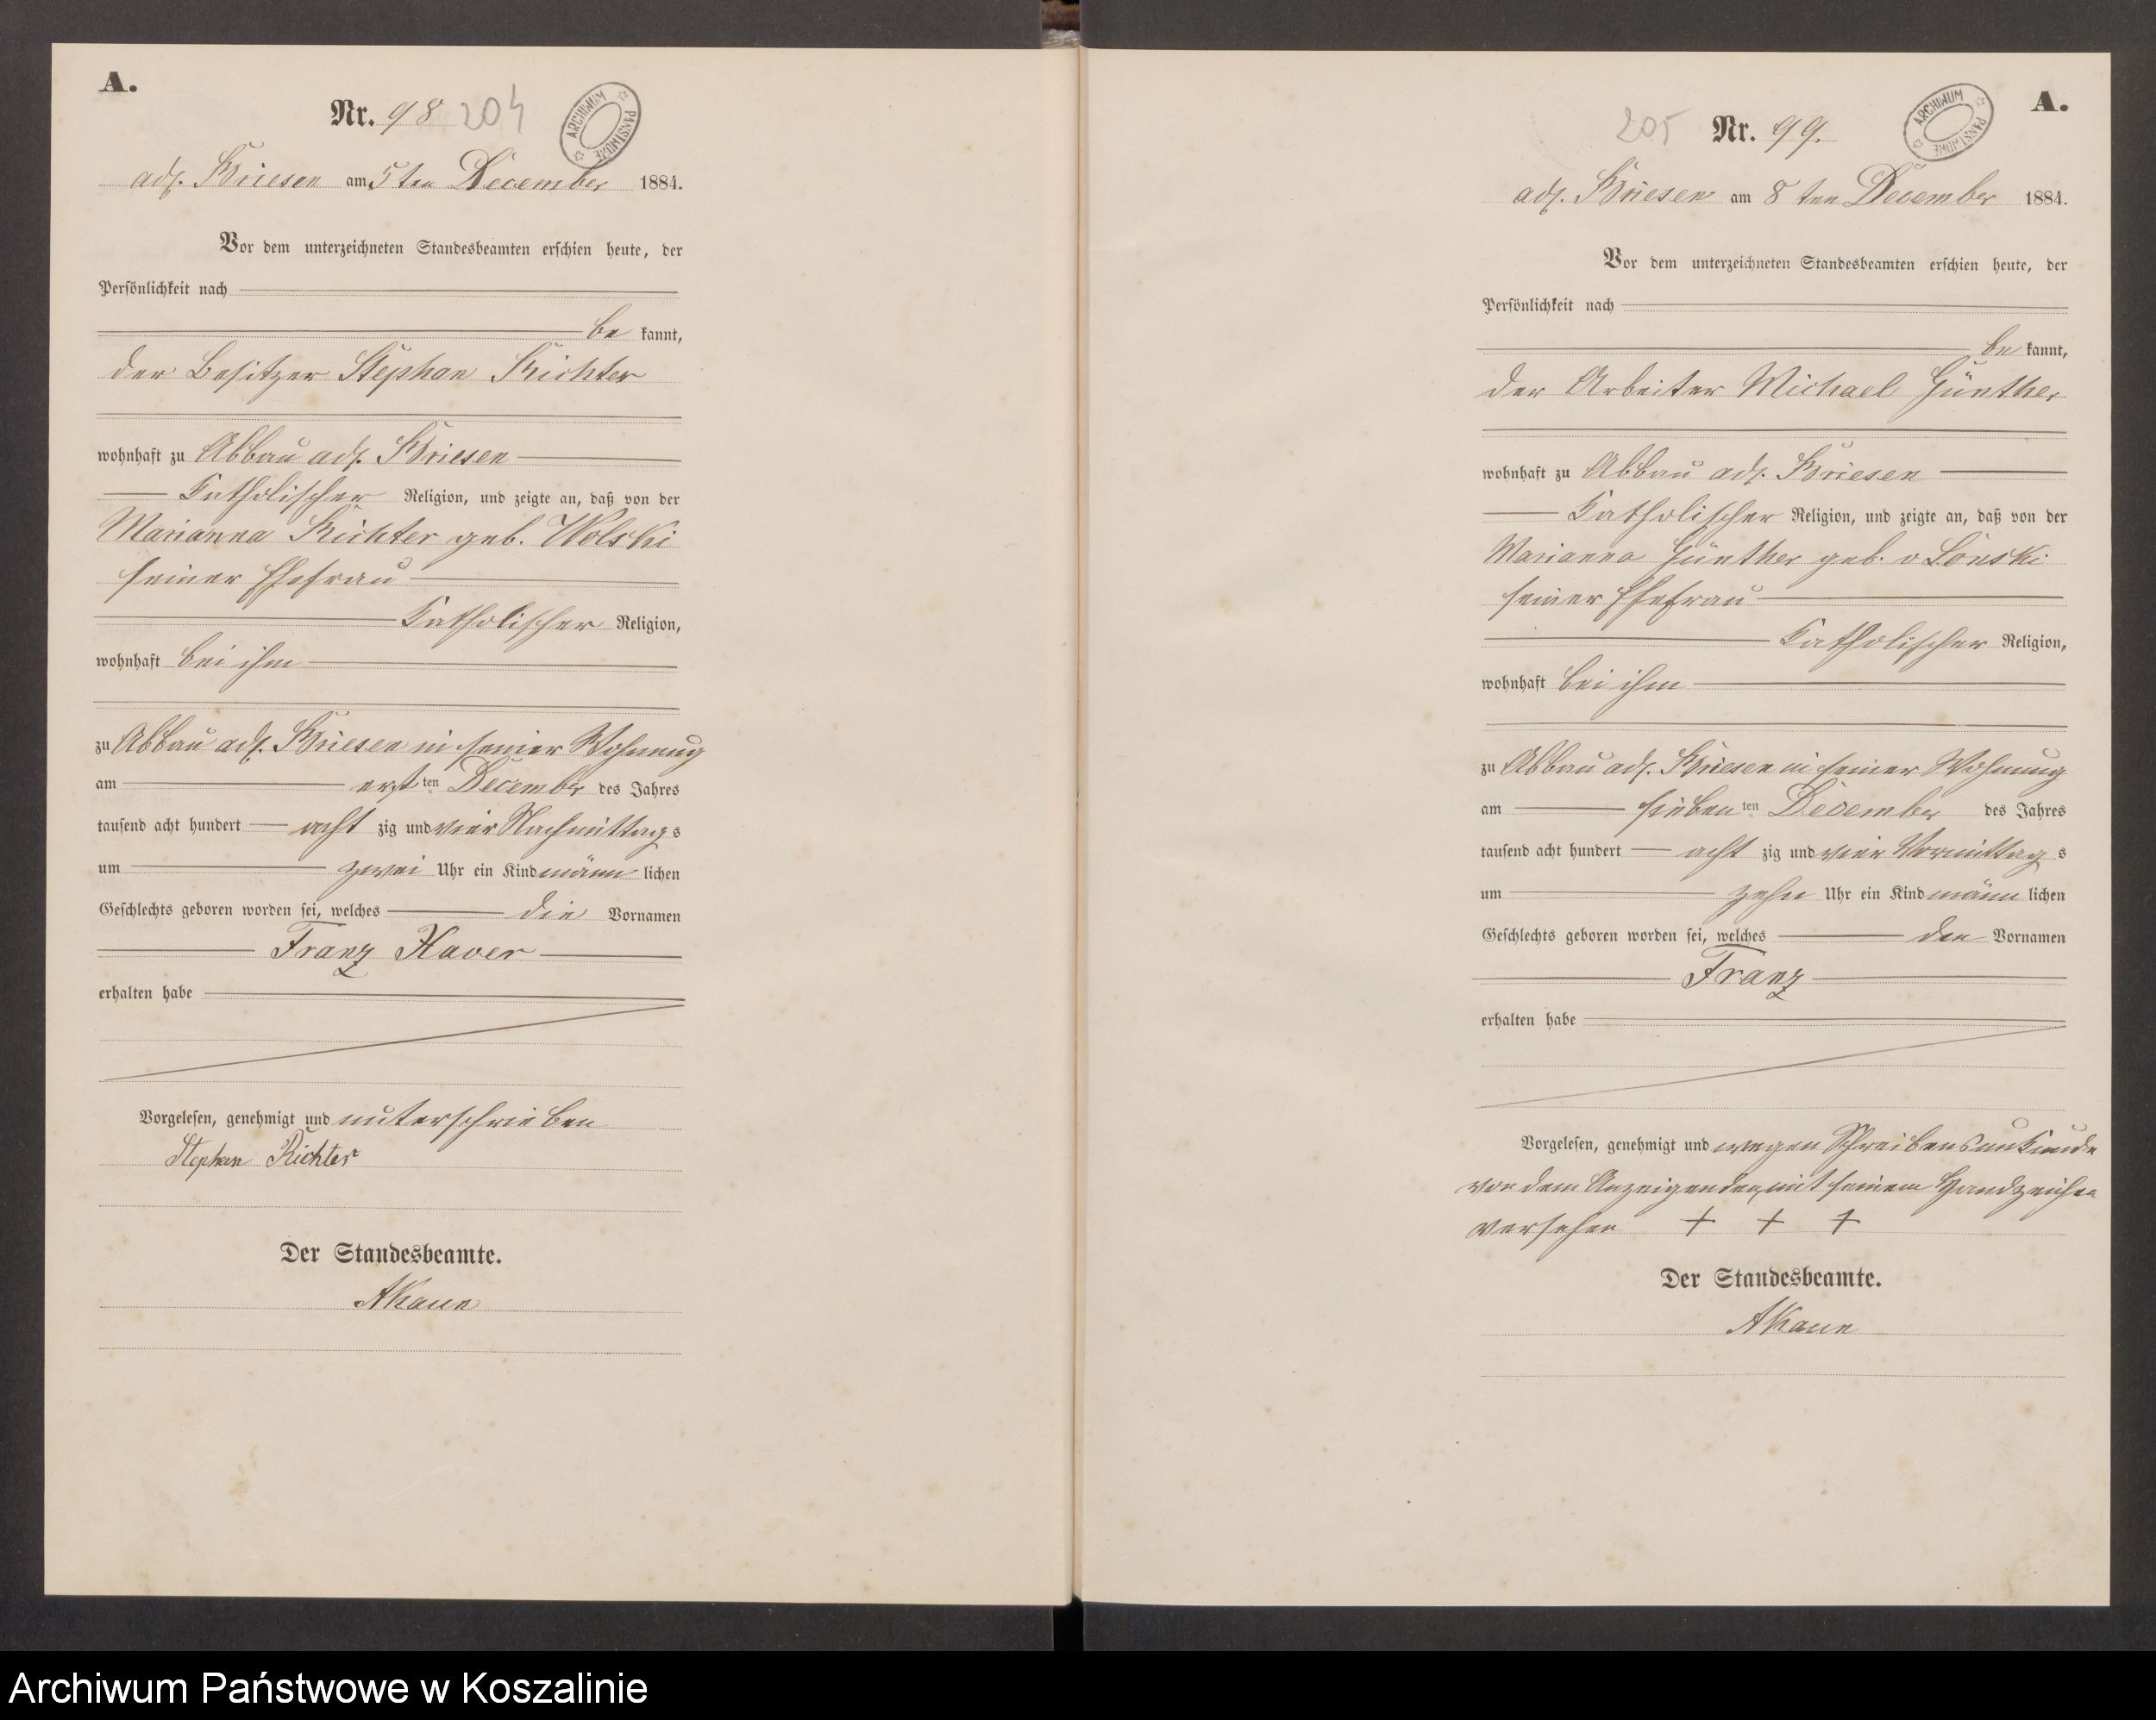 A.
Nr. 98 204
ARCHIWUM PAŃSTWOWE
adl. Briesen am 5ten December 1884.
Vor dem unterzeichneten Standesbeamten erschien heute, der
Persönlichkeit nach
be kannt,
der Besitzer Stephan Richter
wohnhaft zu Abbau adl. Briesen
Katholischer Religion, und zeigte an, daß von der
Marianna Richter geb. Wolski
seiner Ehefrau
Katholischer Religion,
wohnhaft bei ihm
zu Abbau adl. Briesen in seiner Wohnung
am erst ten December des Jahres
tausend acht hundert acht zig und vier Nachmittag s
um zwei Uhr ein Kind männ lichen
Geschlechts geboren worden sei, welches die Vornamen
Franz Xaver
erhalten habe
Vorgelesen, genehmigt und unterschrieben
Stephan Richter
Der Standesbeamte.
A.
205 Nr. 99.
ARCHIWUM PAŃSTWOWE
adl. Briesen am 8 ten December 1884.
Vor dem unterzeichneten Standesbeamten erschien heute, der
Persönlichkeit nach
be kannt,
der Arbeiter Michael Günther
wohnhaft zu Abbau adl. Briesen
Katholischer Religion, und zeigte an, daß von der
Marianna Günther geb. v Lonski
seiner Ehefrau
Katholischer Religion,
wohnhaft bei ihm
zu Abbau adl. Briesen in seiner Wohnung
am sieben ten December des Jahres
tausend acht hundert acht zig und vier Vormittag s
um zehn Uhr ein Kind männ lichen
Geschlechts geboren worden sei, welches den Vornamen
Franz
erhalten habe
Vorgelesen, genehmigt und wegen Schreibensunkunde
von dem Anzeigenden mit seinem Handzeichen
versehen + + +
Der Standesbeamte.
Archiwum Państwowe w Koszalinie